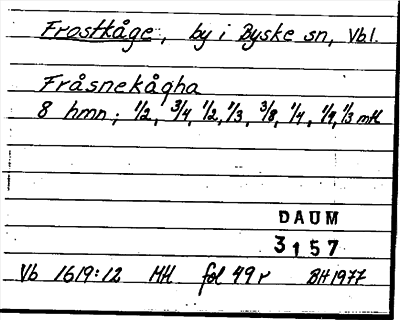 Frostkåge, by i Byske sn, Vbl.
Fråsnekågha
8 hmn; 1/2, 3/4, 1/2, 1/3, 3/8, 1/4, 1/4, 1/3 mtl
DAUM
3157
Vb 1619:12 MH fol 49 r BH 1977